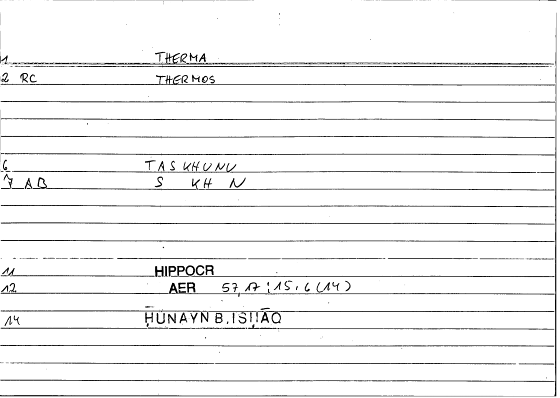 1 THERMA
2 RC THERMOS
6 TASKHUNU
7 AB S KH N
11 HIPPOCR
12 AER 57,17 ; 15,6 (14)
14 ḤUNAYN B. ISḤĀQ